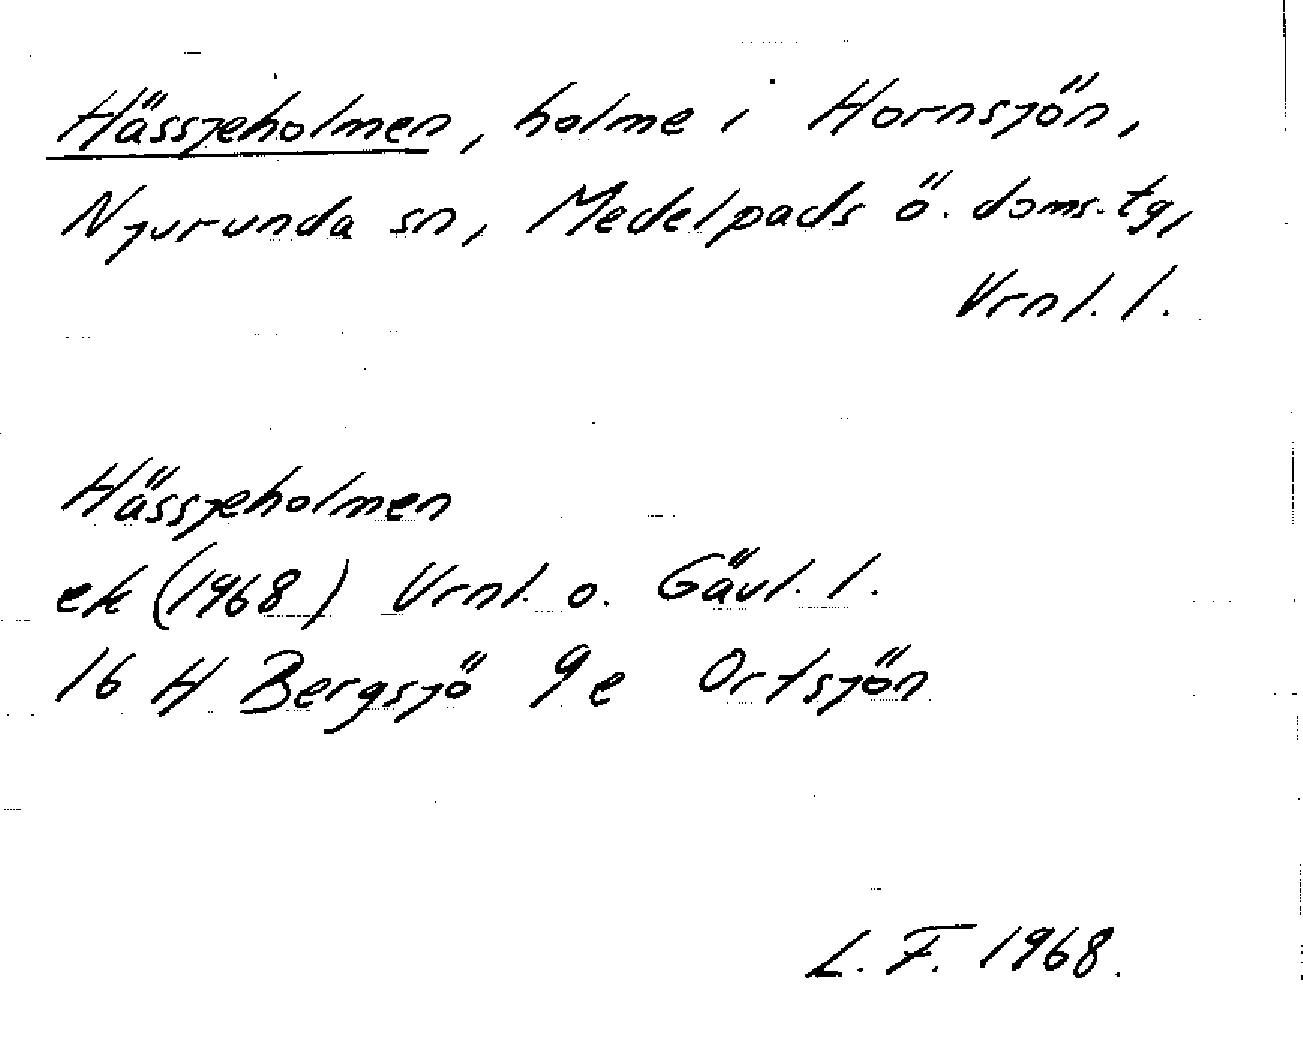 Hässjeholmen, holme i Hornsjön,
Njurunda sn, Medelpads ö. doms.tg,
Vrnl. l.
Hässjeholmen
ek (1968) Vrnl. o. Gävl. l.
16 H Bergsjö 9e Ortsjön
L. F. 1968.